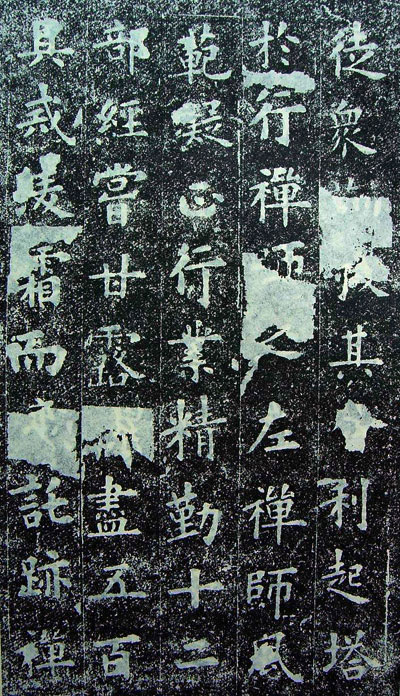 徒衆收其利起塔
於行禪師之左禪師風
範凝正行業精勤十二
部經嘗甘露盡五百
具戒凌霜而託跡禪